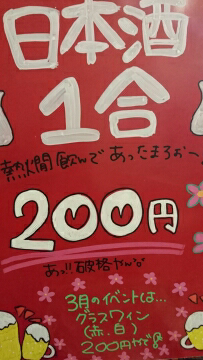 日本酒
1合
熱燗飲んであったまろおー
200円
あっ!!破格やん°°
3月のイベントは...
グラスワイン
(赤、白)
200円